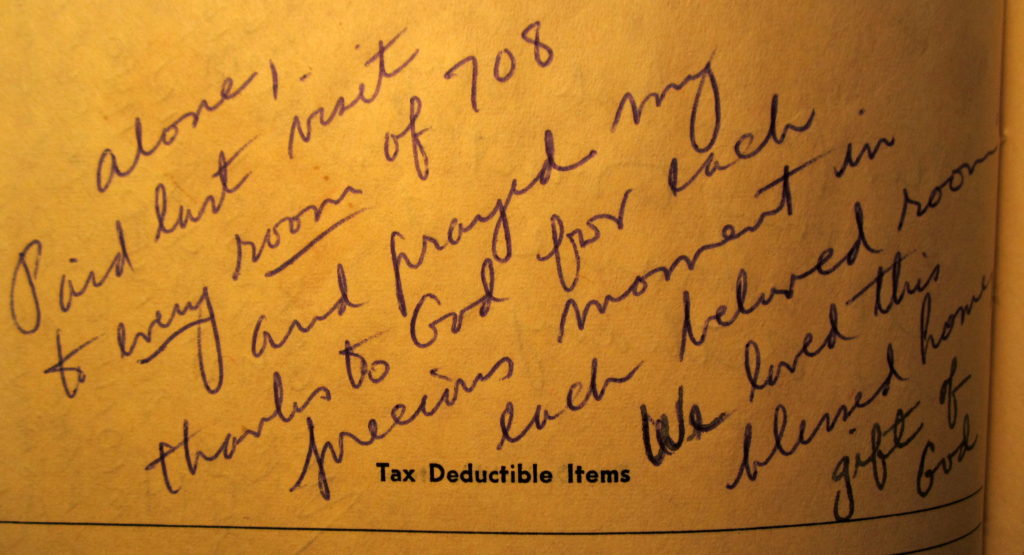 alone,.
Paid last visit
to every room of 708
and prayed my
thanks to God for each
precious moment in
each beloved room
We loved this
blessed home
gift of
God
Tax Deductible Items